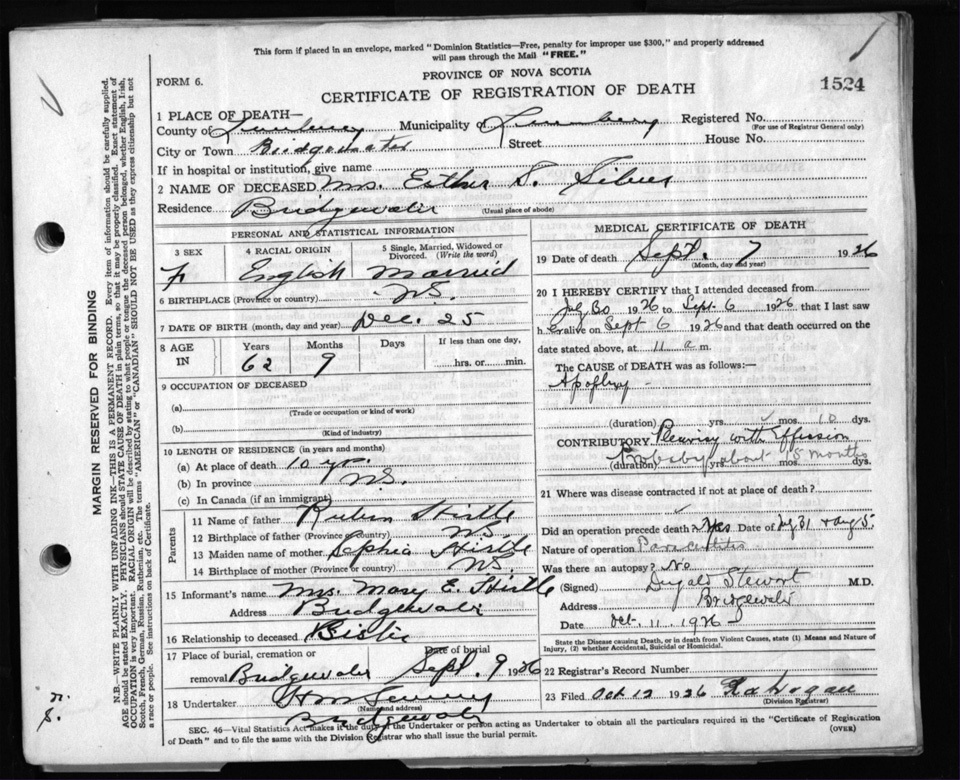 This form if placed in an envelope, marked "Dominion Statistics—Free, penalty for improper use $300," and properly addressed
will pass through the Mail "FREE."
PROVINCE OF NOVA SCOTIA
FORM 6.
CERTIFICATE OF REGISTRATION OF DEATH
1524
1 PLACE OF DEATH—
County of Lunenburg Municipality of Lunenburg Registered No.
(For use of Registrar General only)
City or Town Bridgewater Street House No.
If in hospital or institution, give name
2 NAME OF DECEASED Mrs. Esther S. Silver
Residence Bridgewater (Usual place of abode)
PERSONAL AND STATISTICAL INFORMATION
3 SEX 4 RACIAL ORIGIN 5 Single, Married, Widowed or Divorced. (Write the word)
F English Married
6 BIRTHPLACE (Province or country) N.S.
7 DATE OF BIRTH (month, day and year) Dec. 25
8 AGE IN Years Months Days If less than one day,
62 9 hrs. or min.
9 OCCUPATION OF DECEASED
(a)
(Trade or occupation or kind of work)
(b)
(Kind of industry)
10 LENGTH OF RESIDENCE (in years and months)
(a) At place of death 10 yr.
(b) In province N.S.
(c) In Canada (if an immigrant)
Parents
11 Name of father Hirtle
12 Birthplace of father (Province or country) N.S.
13 Maiden name of mother Sophia Hirtle
14 Birthplace of mother (Province or country) N.S.
15 Informant's name Mrs. Mary E. Hirtle
Address Bridgewater
16 Relationship to deceased Sister
17 Place of burial, cremation or Date of burial
removal Bridgewater Sept. 9 1926
18 Undertaker
(Name and address)
Bridgewater
MEDICAL CERTIFICATE OF DEATH
19 Date of death Sept. 7 1926
(Month, day and year)
20 I HEREBY CERTIFY that I attended deceased from
30 1926 to Sept. 6 1926 that I last saw
h er alive on Sept 6 1926 and that death occurred on the
date stated above, at 11 a m.
The CAUSE of DEATH was as follows:—
Apoplexy
(duration) yrs. mos. 10 dys.
CONTRIBUTORY Pleurisy with Effusion
Probably about 5 months
(duration) yrs. mos. dys.
21 Where was disease contracted if not at place of death?
Did an operation precede death? Yes Date of 31 & Aug 5
Nature of operation
Was there an autopsy? No
(Signed) Dugald Stewart M.D.
Address Bridgewater
Date Oct. 11 1926
State the Disease causing Death, or in death from Violent Causes, state (1) Means and Nature of
Injury, (2) whether Accidental, Suicidal or Homicidal.
22 Registrar's Record Number
23 Filed Oct 12 1926 Hogan
(Division Registrar)
SEC. 46—Vital Statistics Act makes it the duty of the Undertaker or person acting as Undertaker to obtain all the particulars required in the "Certificate of Registration
of Death" and to file the same with the Division Registrar who shall issue the burial permit. (OVER)
MARGIN RESERVED FOR BINDING
N.B.—WRITE PLAINLY WITH UNFADING INK—THIS IS A PERMANENT RECORD. Every item of information should be carefully supplied.
AGE should be stated EXACTLY. PHYSICIANS should STATE CAUSE OF DEATH in plain terms, so that it may be properly classified. Exact statement of
OCCUPATION is very important. RACIAL ORIGIN will be described by stating to what people or tongue the deceased person belonged, whether English, Irish,
Scotch, French, German, Russian, Ruthenian, etc. The terms "AMERICAN" or "CANADIAN" SHOULD NOT BE USED as they express citizenship but not
a race or people. See instructions on back of Certificate.